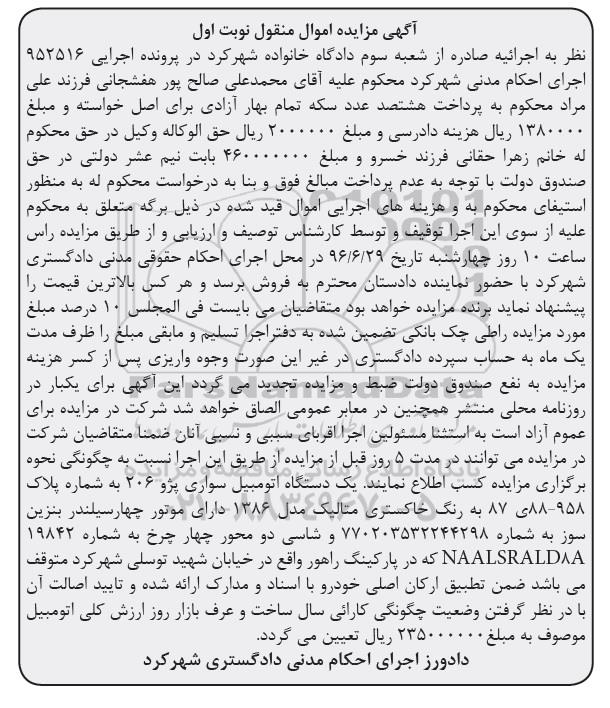 آگهی مزایده اموال منقول نوبت اول
نظر به اجرائیه صادره از شعبه سوم دادگاه خانواده شهرکرد در پرونده اجرایی ۹۵۲۵۱۶
اجرای احکام مدنی شهرکرد محکوم علیه آقای محمدعلی صالح پور هفشجانی فرزند علی
مراد محکوم به پرداخت هشتصد عدد سکه تمام بهار آزادی برای اصل خواسته و مبلغ
۱۳۸۰۰۰۰ ریال هزینه دادرسی و مبلغ ۲۰۰۰۰۰۰ ریال حق الوکاله وکیل در حق محکوم
له خانم زهرا حقانی فرزند خسرو و مبلغ ۴۶۰۰۰۰۰۰۰ بابت نیم عشر دولتی در حق
صندوق دولت با توجه به عدم پرداخت مبالغ فوق و بنا به درخواست محکوم له به منظور
استیفای محکوم به و هزینه های اجرایی اموال قید شده در ذیل برگه متعلق به محکوم
علیه از سوی این اجرا توقیف و توسط کارشناس توصیف و ارزیابی و از طریق مزایده راس
ساعت ۱۰ روز چهارشنبه تاریخ ۹۶/۶/۲۹ در محل اجرای احکام حقوقی مدنی دادگستری
شهرکرد با حضور نماینده دادستان محترم به فروش برسد و هر کس بالاترین قیمت را
پیشنهاد نماید برنده مزایده خواهد بود متقاضیان می بایست فی المجلس ۱۰ درصد مبلغ
مورد مزایده راطی چک بانکی تضمین شده به دفتراجرا تسلیم و مابقی مبلغ را ظرف مدت
یک ماه به حساب سپرده دادگستری در غیر این صورت وجوه واریزی پس از کسر هزینه
مزایده به نفع صندوق دولت ضبط و مزایده تجدید می گردد این آگهی برای یکبار در
روزنامه محلی منتشر همچنین در معابر عمومی الصاق خواهد شد شرکت در مزایده برای
عموم آزاد است به استثنا مسئولین اجرا اقربای سببی و نسبی آنان ضمنا متقاضیان شرکت
در مزایده می توانند در مدت ۵ روز قبل از مزایده از طریق این اجرا نسبت به چگونگی نحوه
برگزاری مزایده کسب اطلاع نمایند. یک دستگاه اتومبیل سواری پژو ۲۰۶ به شماره پلاک
۹۵۸-۸۸ی ۸۷ به رنگ خاکستری متالیک مدل ۱۳۸۶ دارای موتور چهارسیلندر بنزین
سوز به شماره ۷۷۰۲۰۳۵۳۲۲۴۴۲۹۸ و شاسی دو محور چهار چرخ به شماره ۱۹۸۴۲
NAALSRALD۸A که در پارکینگ راهور واقع در خیابان شهید توسلی شهرکرد متوقف
می باشد ضمن تطبیق ارکان اصلی خودرو با اسناد و مدارک ارائه شده و تایید اصالت آن
با در نظر گرفتن وضعیت چگونگی کارائی سال ساخت و عرف بازار روز ارزش کلی اتومبیل
موصوف به مبلغ ۲۳۵۰۰۰۰۰۰ ریال تعیین می گردد.
دادورز اجرای احکام مدنی دادگستری شهرکرد
ParsNamadData
پایگاه اطلاع رسانی مناقصه و مزایده
۰۲۱-۸۸۳۴۹۶۷۰-۵